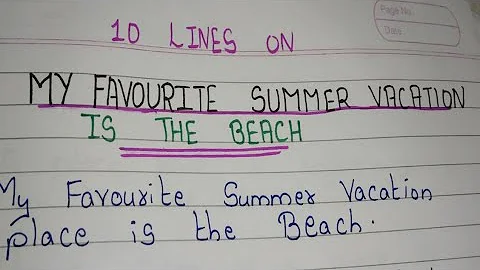 Page No.
Date
10 LINES ON
MY FAVOURITE SUMMER VACATION
IS THE BEACH
My Favourite Summer Vacation
place is the Beach.